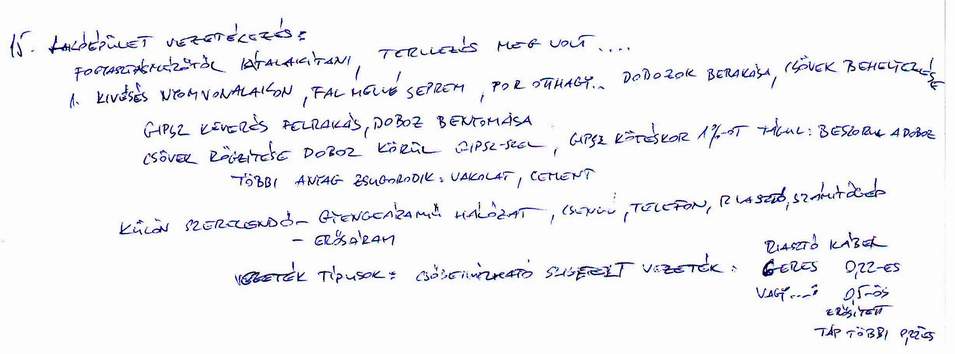 15. LAKÓÉPÜLET VEZETÉKEZÉS:
FOGYASZTÁSMÉRŐTŐL KIALAKÍTANI, TERVEZÉS MEG VOLT....
1. KIVÉSÉS NYOMVONALAKON, FAL MELLÉ SEPREM, POR OTTHAGY... DOBOZOK BERAKÁSA, CSÖVEK BEHELYEZÉSE
GIPSZ KEVERÉS FELRAKÁS, DOBOZ BENYOMÁSA
CSÖVEK RÖGZÍTÉSE DOBOZ KÖRÜL GIPSZ-SZEL, GIPSZ KÖTÉSKOR 1%-OT TÁGUL: BESZORUL A DOBOZ
TÖBBI ANYAG ZSUGORODIK: VAKOLAT, CEMENT
KÜLÖN SZERELENDŐ - GYENGEÁRAMÚ HÁLÓZAT, CSENGŐ, TELEFON, RIASZTÓ, SZÁMÍTÓGÉP
- ERŐSÁRAM
VEZETÉK TÍPUSOK: CSŐBEHÚZHATÓ SZIGETELT VEZETÉK: RIASZTÓ KÁBEL
6 ERES 0,22-ES
VAGY....: 0,5-ÖS
ERŐSÍTETT
TÁP TÖBBI 0,22ES